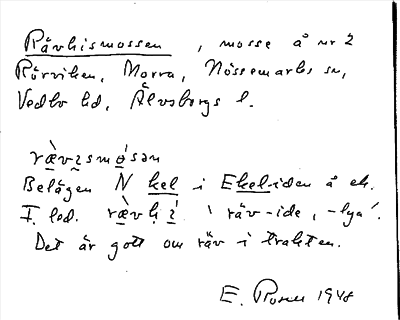 Rävhismossen, mosse å nr 2
Rörviken, Morra, Nössemarks sn,
Vedbo hd, Älvsborgs l.
rævɪsmosən
Belägen N kel i Ekel-iden å ek.
I. led. rævhi 'räv-ide, -lya'.
Det är gott om räv i trakten.
E. 1948